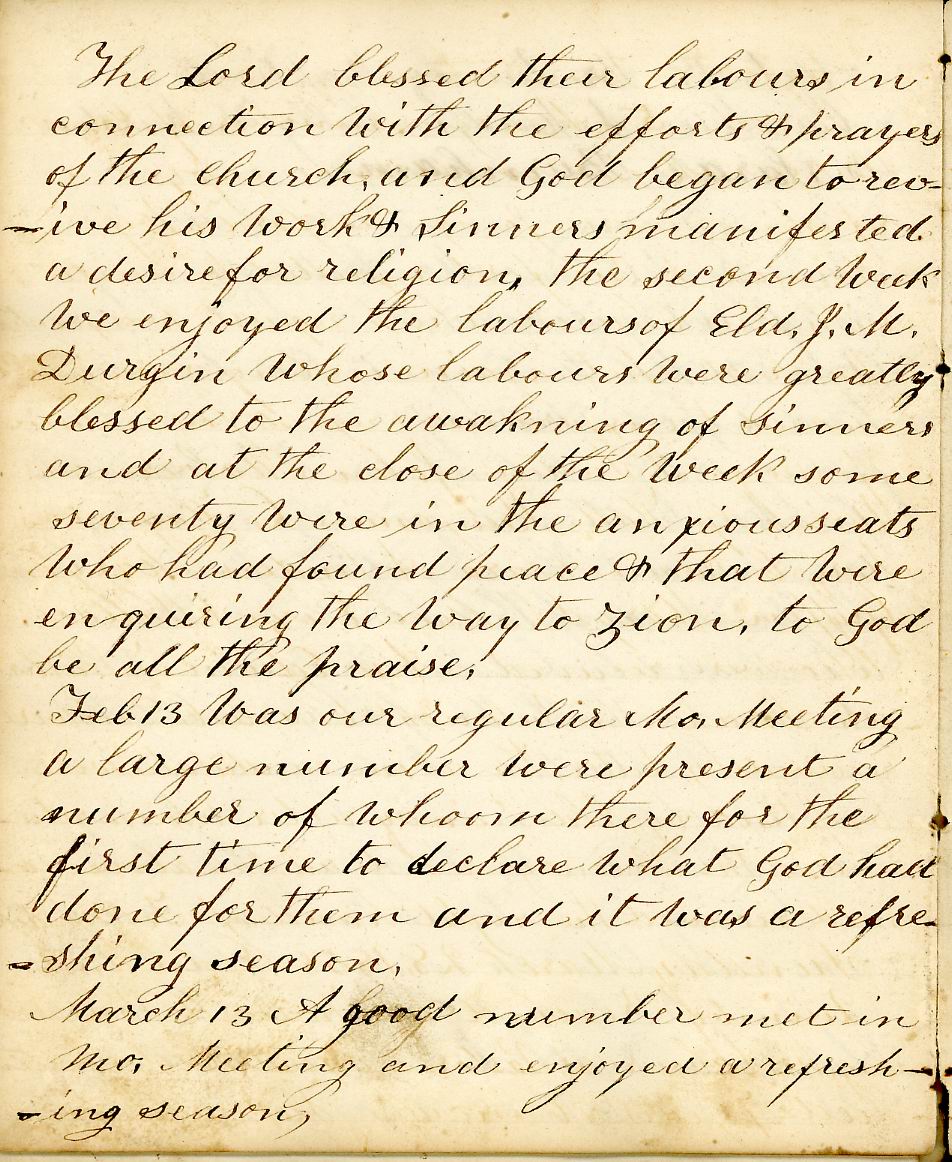 The Lord blessed their labours in
connection with the efforts & prayers
of the church, and God began to rev-
-ive his work & Sinners manifested
a desire for religion, the second week
we enjoyed the labours of Eld. J. M.
Durgin whose labours were greatly
blessed to the awakning of sinners
and at the close of the week some
seventy were in the anxious seats
who had found peace & that were
enquiring the way to Zion, to God
be all the praise,
Feb 13 was our regular Mo. Meeting
a large number were present a
number of whoom there for the
first time to declare what God had
done for them and it was a refre-
-shing season,
March 13 A good number met in
Mo. Meeting and enjoyed a refresh-
-ing season,